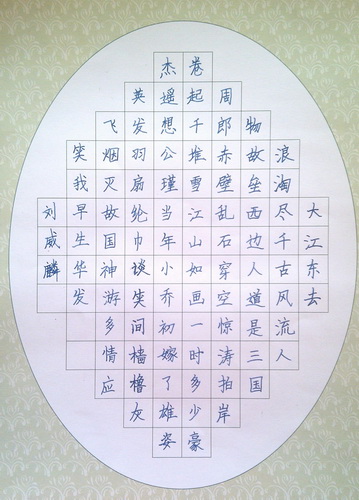 大江东去
浪淘尽千古风流人
物故垒西边人道是三国
周郎赤壁乱石穿空惊涛拍岸
卷起千堆雪江山如画一时多少豪
杰遥想公瑾当年小乔初嫁了雄姿
英发羽扇纶巾谈笑间樯橹灰
飞烟灭故国神游多情应
笑我早生华发
刘威麟